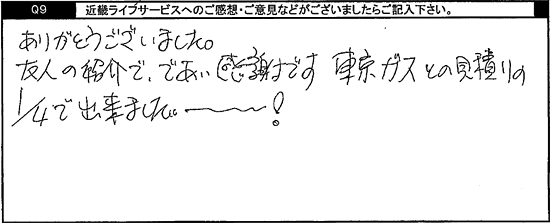 Q9 近畿ライフサービスへのご感想・ご意見などがございましたらご記入下さい。
ありがとうございました。
友人の紹介で、であい感謝です 東京ガスとの見積りの
1/4で出来ました。〜〜!